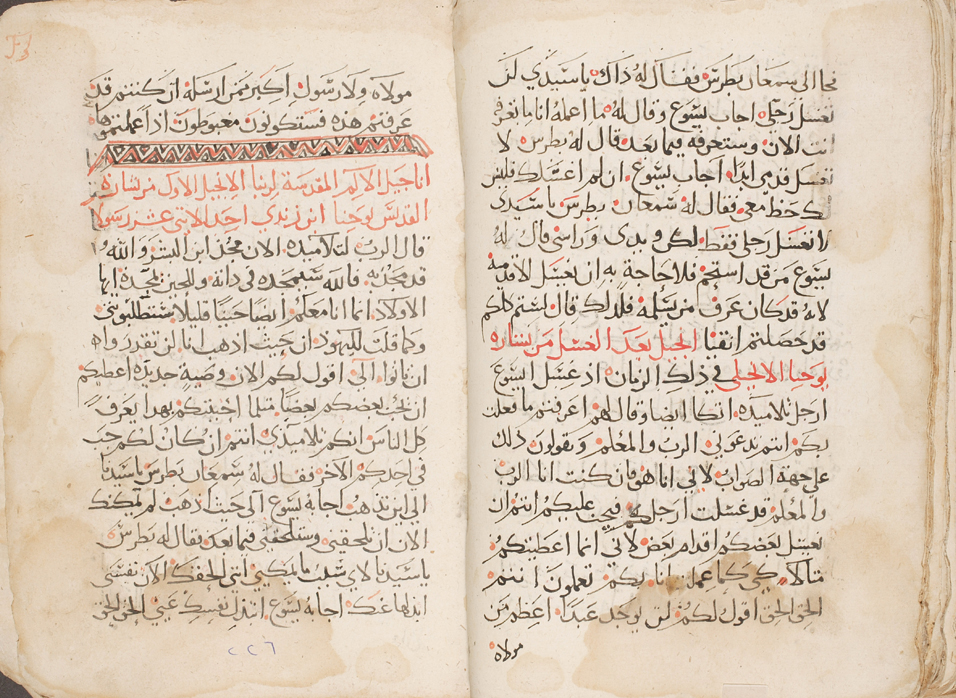 فجا الى سمعان بطرس فقال له ذاك يا سيدي لن
تغسل رجلي اجاب يسوع وقال له ما اعمله انا ما تعرفه
انت الان وستعرفه فيما بعد قال له بطرس لا
تغسل قدمي ابدا اجاب يسوع ان لم اغسلك فليس
لك حظ معي فقال له سمعان بطرس يا سيدي
لا تغسل رجلي فقط لكن ويدي وراسي قال له
يسوع من قد استحم فلا حاجة به ان يغسل الا قدميه
لانه قد كان عرف من يسلمه فلذلك قال لستم كلكم
قد حصلتم انقيا انجيل بعد الغسل من بشارة
يوحنا الانجيلي في ذلك الزمان اذ غسل ايسوع
ارجل تلاميذه اتكا ايضا وقال لهم اعرفتم ما فعلت
بكم انتم تدعوني الرب والمعلم وتقولون ذلك
على جهة الصواب لاني انا هو فان كنت انا الرب
والمعلم قد غسلت ارجلكم فيجب عليكم انتم ان
تغسل بعضكم اقدام بعض لاني انما اعطيتكم
مثالا كي كما عمل انا بكم تعملون انتم
الحق الحق اقول لكم لن يوجد عبدا اعظم من
مولاه
مولاه ولا رسول اكبر ممن ارسله ان كنتم قد
عرفتم هذه فستكونون مغبوطون اذا عملتموها
اناجيل الالام المقدسة لربنا الانجيل الاول من بشارة
القديس يوحنا ابن زبدي احد الاثني عشر رسولا
قال الرب لتلاميذه الان مجد ابن البشر والله
قد مجد به فالله سيمجده في ذاته وللحين يمجده ايها
الاولاد انما انا معكم ايضا حينا قليلا ستطلبونني
وكما قلت لليهود ان حيث اذهب انا لن تقتدروا
ان تاتوا الي اقول لكم الان وصية جديدة اعطيكم
ان يحب بعضكم بعضا مثلما احببتكم بهذا يعرف
كل الناس انكم تلاميذي انتم ان كان لكم حب
في احدكم الاخر فقال له سمعان بطرس يا سيدنا
الى اين تذهب اجابه يسوع الى حيث اذهب لم يمكنك
الان ان تلحقني وستلحقني فيما بعد فقال له بطرس
يا سيدنا لاي شات ما يمكنني انني الحقك الان نفسي
ابذلها عنك اجابه يسوع اتبذل نفسك عني الحق الحق
٢٢٦